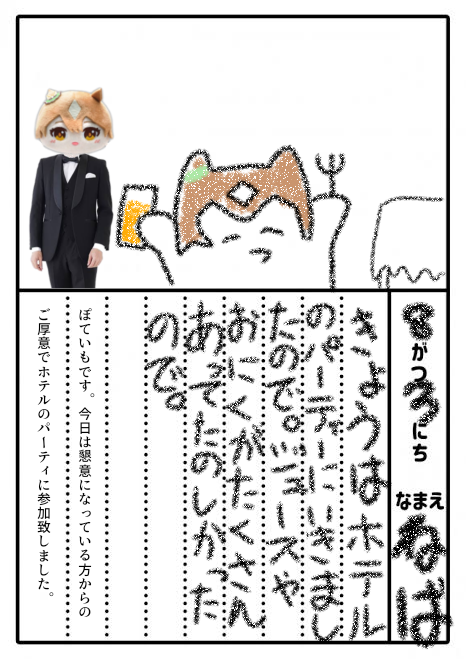 8がつ3にち　なまえ　ねば
きょうはホテル
のパーティーにいきまし
たので。ジュースや
おにくがたくさん
あってたのしかった
ので。
ぽていもです。今日は懇意になっている方からの
ご厚意でホテルのパーティに参加致しました。